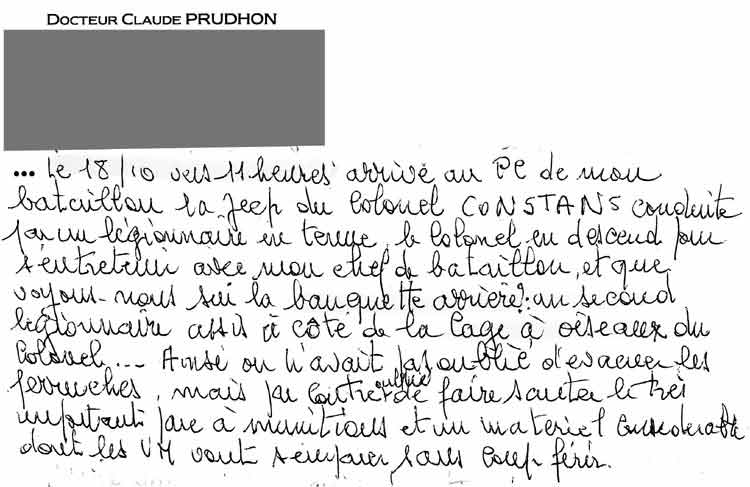 DOCTEUR CLAUDE PRUDHON
... Le 18/10 vers 11 heures arrive au PC de mon
bataillon la jeep du Colonel CONSTANS conduite
par un légionnaire en tenue, le Colonel en descend pour
s'entretenir avec mon chef de bataillon, et que
voyons-nous sur la banquette arrière? : un second
légionnaire assis à côté de la cage à oiseaux du
Colonel... Ainsi on n'avait pas oublié d'évacuer les
perruches, mais par contre oublié de faire sauter le très
important parc à munitions et un matériel considérable
dont les VM vont s'emparer sans coup férir.